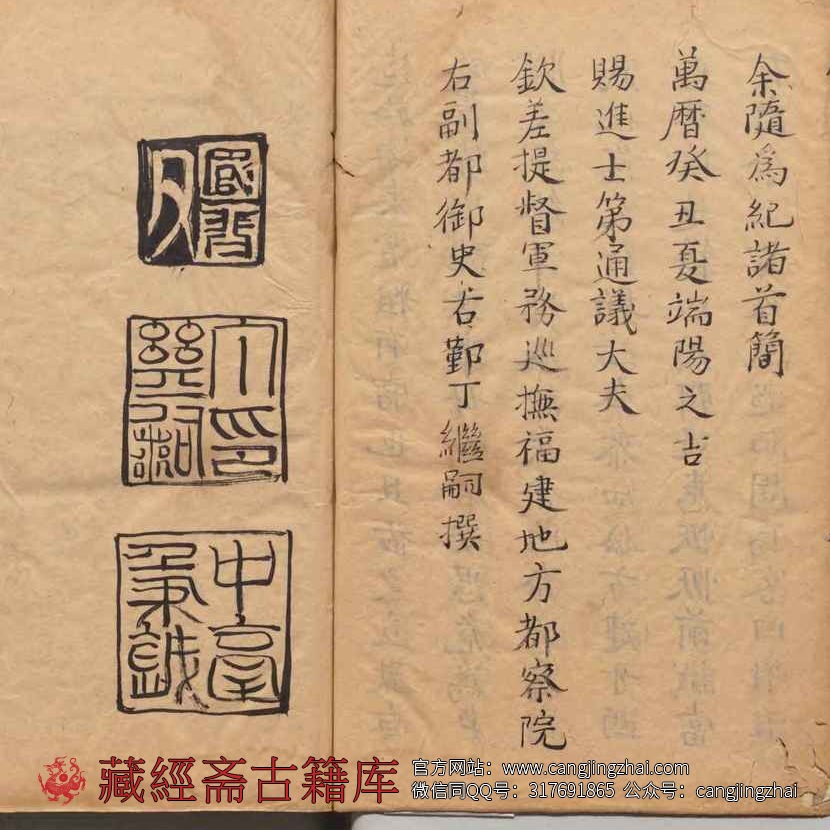 余隨爲紀諸首簡
萬曆癸丑夏端陽之吉
賜進士第通議大夫
欽差提督軍務巡撫福建地方都察院
右副都御史古鄞丁繼嗣撰
丁印
繼嗣
中臺
秉鉞
藏經斋古籍库
官方网站：www.cangjingzhai.com
微信同QQ号：317691865 公众号：cangjingzhai